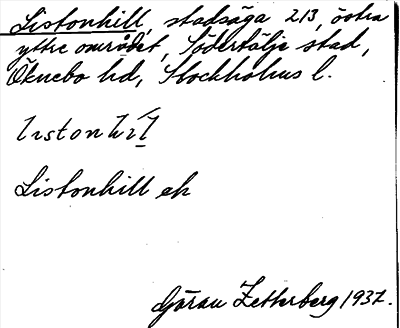 Listonhill, stadsäga 213, östra
yttre området, Södertälje stad,
Öknebo hd, Stockholms l.
listonhil
Listonhill ek
Göran Zetterberg 1937.